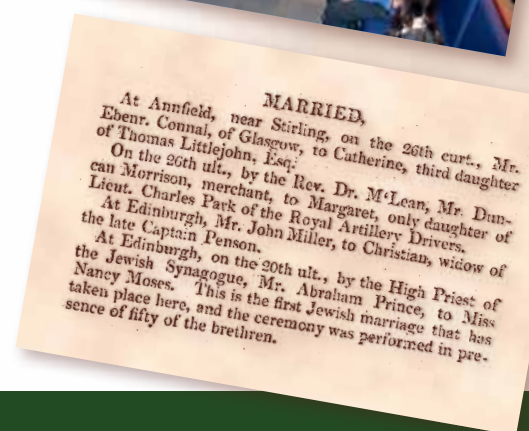 MARRIED,
At Annfield, near Stirling, on the 26th curt., Mr.
Ebenr. Connal, of Glasgow, to Catherine, third daughter
of Thomas Littlejohn, Esq.
On the 26th ult., by the Rev. Dr. M‘Lean, Mr. Dun-
can Morrison, merchant, to Margaret, only daughter of
Lieut. Charles Park of the Royal Artillery Drivers.
At Edinburgh, Mr. John Miller, to Christian, widow of
the late Captain Penson.
At Edinburgh, on the 20th ult., by the High Priest of
the Jewish Synagogue, Mr. Abraham Prince, to Miss
Nancy Moses. This is the first Jewish marriage that has
taken place here, and the ceremony was performed in pre-
sence of fifty of the brethren.